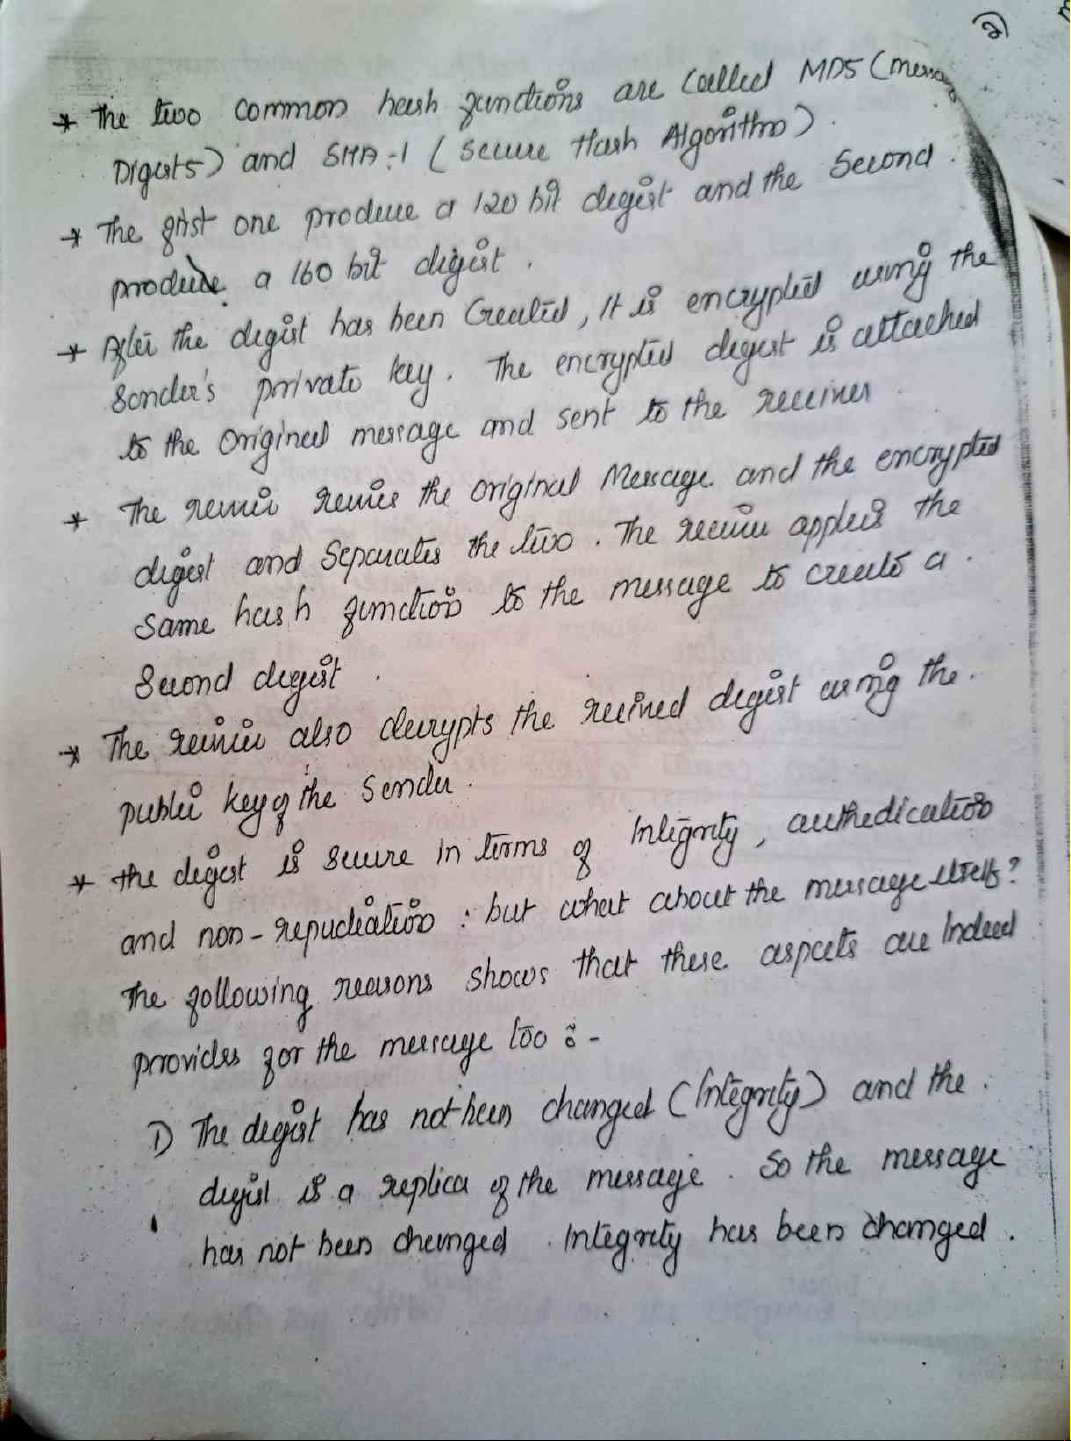 2
* The two common hash functions are called MD5 (Messag
Digest5) and SHA-1 (Secure Hash Algorithm).
* The first one produce a 120 bit digest and the Second
produce a 160 bit digest.
* After the digist has been Created, It is encrypted using the
Sender's private key. The encrypted digest is attached
to the Original message and sent to the receiver
* The receiver receives the original Message and the encrypted
digest and Separates the two. The receiver applies the
Same hash function to the message to create a
Second digest.
* The receiver also decrypts the received digist using the
public key of the Sender.
* the digest is secure in terms of Integrity, authedication
and non-repudiation : but what about the message itself?
The following reasons shows that these aspects are Indeed
provides for the message too :-
1) The digist has not been changed (Integrity) and the
digist is a replica of the message. So the message
has not been changed. Integrity has been changed.